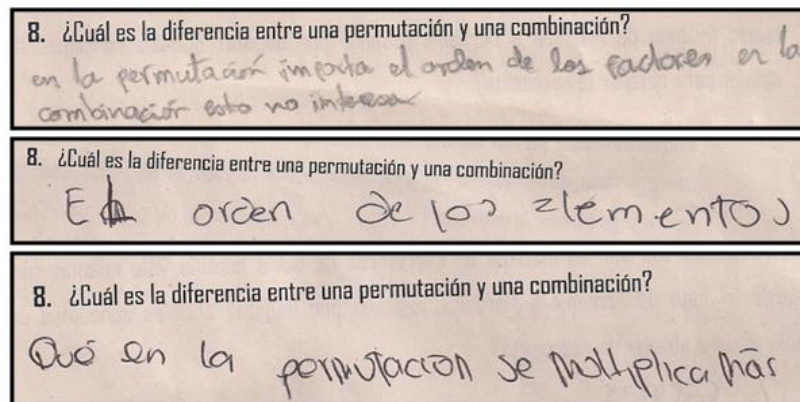 8. ¿Cuál es la diferencia entre una permutación y una combinación?
en la permutación importa el orden de los factores en la
combinación esto no interesa
8. ¿Cuál es la diferencia entre una permutación y una combinación?
El orden de los elementos
8. ¿Cuál es la diferencia entre una permutación y una combinación?
Que en la permutacion se multiplica más